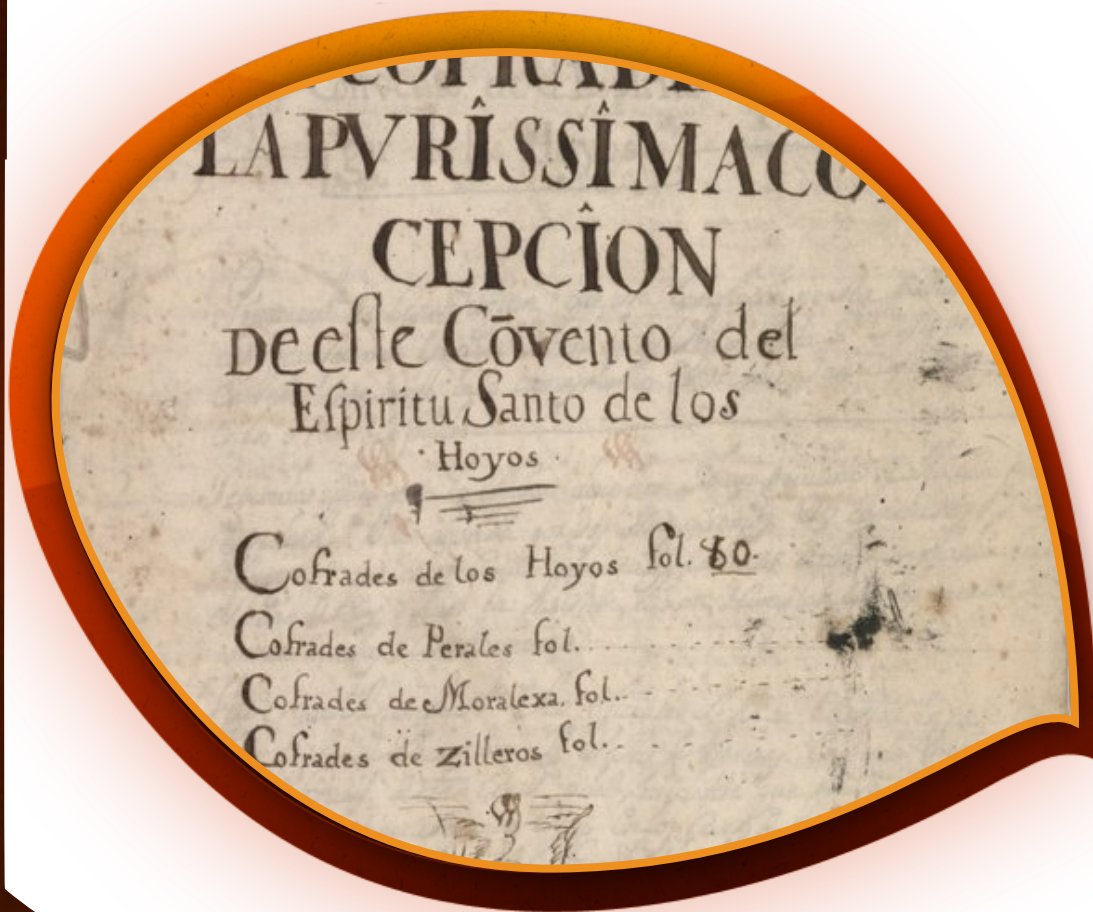 COFRADI
LA PVRÎSSÎMA CO
CEPCÎON
De eſte Cōvento del
Eſpiritu Santo de los
· Hoyos ·
Cofrades de los Hoyos fol. 80.
Cofrades de Perales fol.
Cofrades de Moralexa. fol.
Cofrades de Zilleros fol.